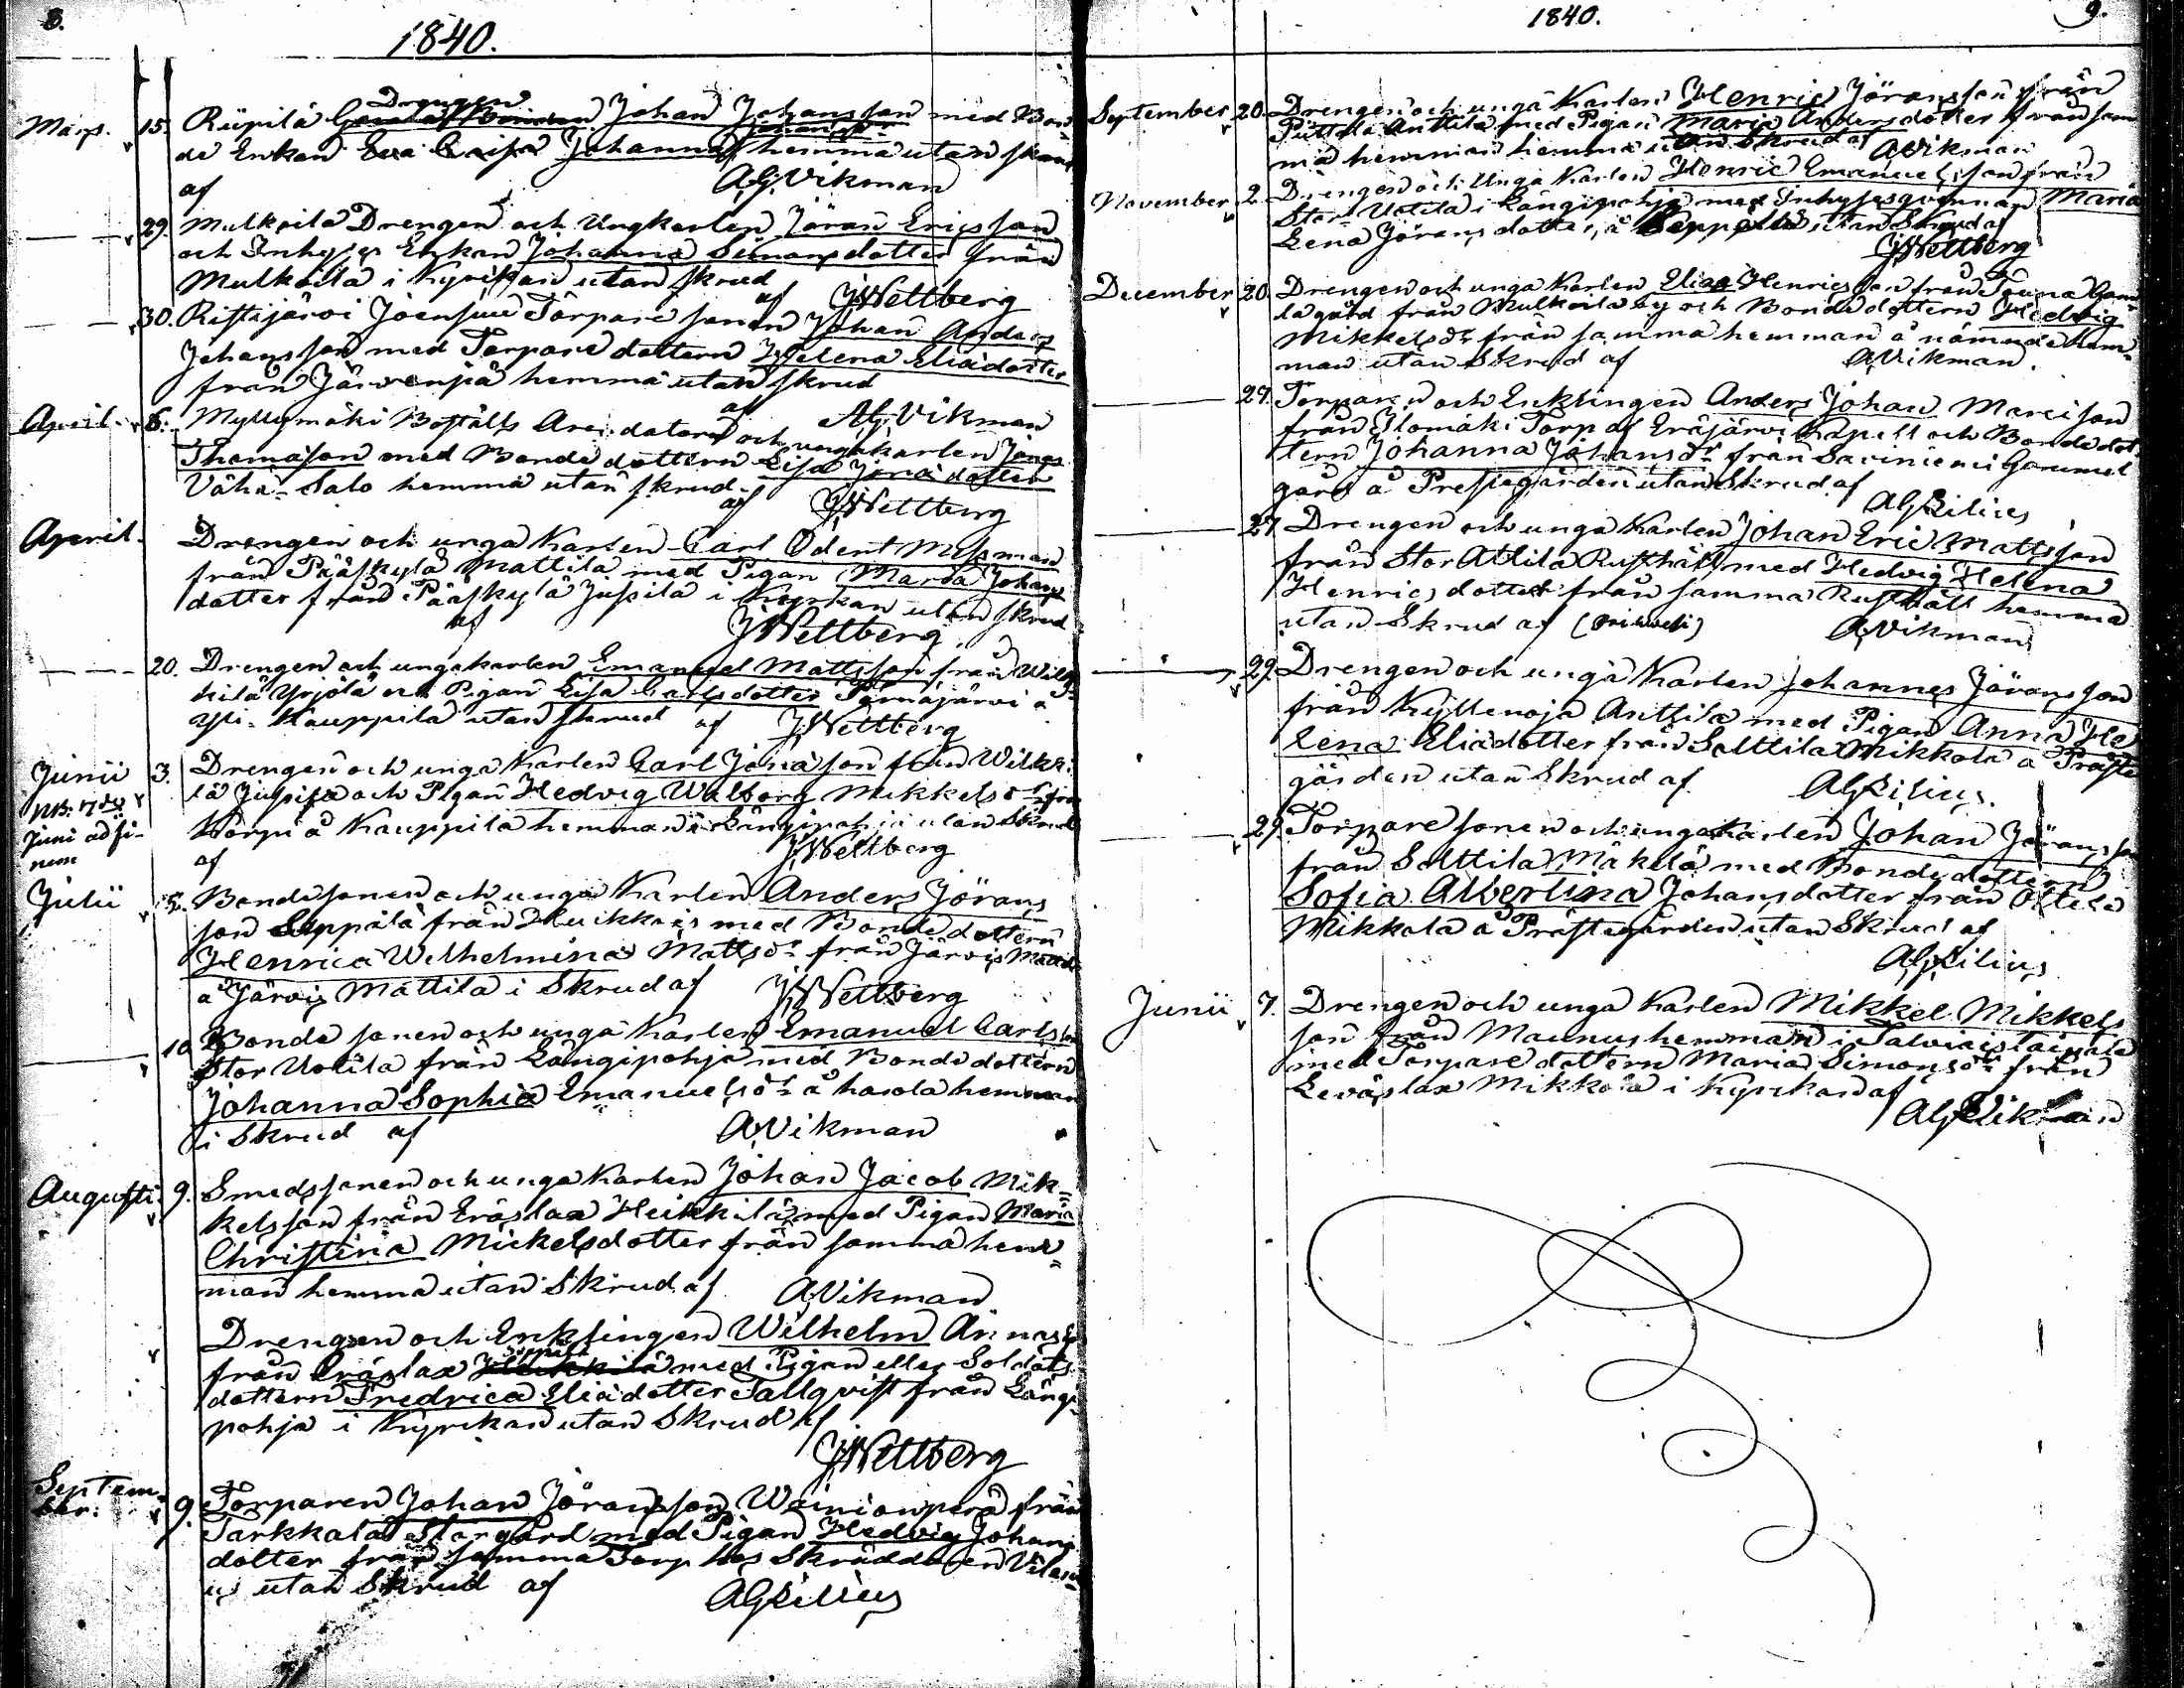 8.
1840.
Mars. 15. Riipilä Drengen Johan Johansson med Bon-
de Enkan Eva Caisa Johansdr Johanna hemma utan skrud
af AG Vikman
29. Mulkoila Drengen och Ungkarlen Jöran Ericsson
och Inhyses Enkan Johanna Simonsdotter från
Mulkoila i Kyrkan utan skrud
af JWettberg
30. Ristijärvi Joensuu Torpare sonen Johan Anders
Johansson med Torpare dottern Helena Eliædotter
från Järvenpä hemma utan skrud
af AG Vikman
April. 6. Myllymäki Boställs Arendatorn och ungakarlen Jonas
Thomasson med Bonde dottern Lisa Jonædotter
Vähä-Salo hemma utan skrud
af JWettberg
April. Drengen och unga Karlen Carl Odert Messman
från Pääskylä Mattila med Pigan Maria Johans
dotter från Pääskylä Jussila i Kyrkan utan skrud
af JWettberg
20. Drengen och ungakarlen Emanuel Mattsson från Wilk-
kilä Yrjölä och Pigan Lisa Carlsdotter Pärnäjärvi å
Kauppila utan skrud af JWettberg
Junii 3. Drengen och unga Karlen Carl Jonæson från Wilkki-
lä Jussila och Pigan Hedvig Walborg Mikkelsdr från
NB. 7 de
Juni ad fi-
nem
Körpi å Kauppila hemman i Längipohja utan skrud
af JWettberg
Julii 5. Bondesonen och unga Karlen Anders Jörans
son Seppälä från med Bonde dottern
Henrica Wilhelmina Mattsdr från Järvis Mattila
å Järvis Mattila i Skrud af JWettberg
10. Bonde sonen och unga Karlen Emanuel Carlsson
Stor Uotila från Längipohja med Bonde dottern
Johanna Sophia Emanuelsdr å hemman
i Skrud af AVikman
Augusti. 9. Smedssonen och unga Karlen Johan Jacob Mik-
kelsson från Eräslax Heikkilä med Pigan Maria
Christina Mickelsdotter från samma hem-
man hemma utan Skrud af AVikman
Drengen och Enklingen Wilhelm
från Eräslax Heikkilä med Pigan eller Soldats
dottern Fredrica Eliædotter Tallqvist från Längi-
pohja i Kyrkan utan Skrud af
JWettberg
Septem-
ber. 9. Torparen Johan Jöransson Wainionperä från
Tarkkala Storgård med Pigan Hedvig Johans
dotter från samma Torp hos Skräddaren
utan Skrud af AGLilius
1840.
9.
September 20. Drengen och unga Karlen Henric Jöransson från
Pitkälä Anttila med Pigan Maria Andersdotter från sam-
ma hemman hemma utan Skrud af AVikman
November 2. Drengen och Unga Karlen Henric Emanuelsson från
Stor Uotila i Längipohja med Inhysesqvinnan Maria
Lena Jöransdotter, å Seppälä utan Skrud af
JWettberg
December 20. Drengen och unga Karlen Elias Henricsson från Touna Gam-
lagård från Mulkoila by och Bonde dottern Hedvig
Mikkelsdr från samma hemman å nämnde hem-
man utan Skrud af AVikman.
27. Torparen och Enklingen Anders Johan Marcisson
från Ilomäki Torp af Eräjärvi Capell och Bonde dot
tern Johanna Johansdr från Saviniemi Gammel
gård å Prestegården utan Skrud af
AGLilius
27. Drengen och unga Karlen Johan Eric Mattsson
från Stor Attila Rusthåll med Hedvig Helena
Henricsdotter från samma Rusthåll hemma
utan Skrud af (Oriwesi) AVikman
29. Drengen och unga Karlen Johannes Jöransson
från Kyllenoja Anttila med Pigan Anna He
lena Eliædotter från Solttila Mikkola å Præste
gården utan Skrud af AGLilius.
29. Torpare sonen och unga Karlen Johan Jöransson
från Solttila Mäkelä med Bonde dottern
Sofia Albertina Johansdotter från
Mikkola å Prästegården utan Skrud af
AGLilius
Junii 7. Drengen och unga Karlen Mikkel Mikkels
son från Maunus hemman i Talviaistaipale
med Torpare dottern Maria Simonsdr från
Leväslax Mikkola i Kyrkan af
AGVikman